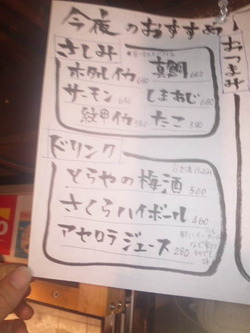 今夜のおすすめ
おつまみ
さしみ
ホタルイカ 680 真鯛 680
サーモン 680 しまあじ 680
紋甲イカ 680 たこ 580
ドリンク
とらやの梅酒 500
さくらハイボール 460
アセロラジュース 280